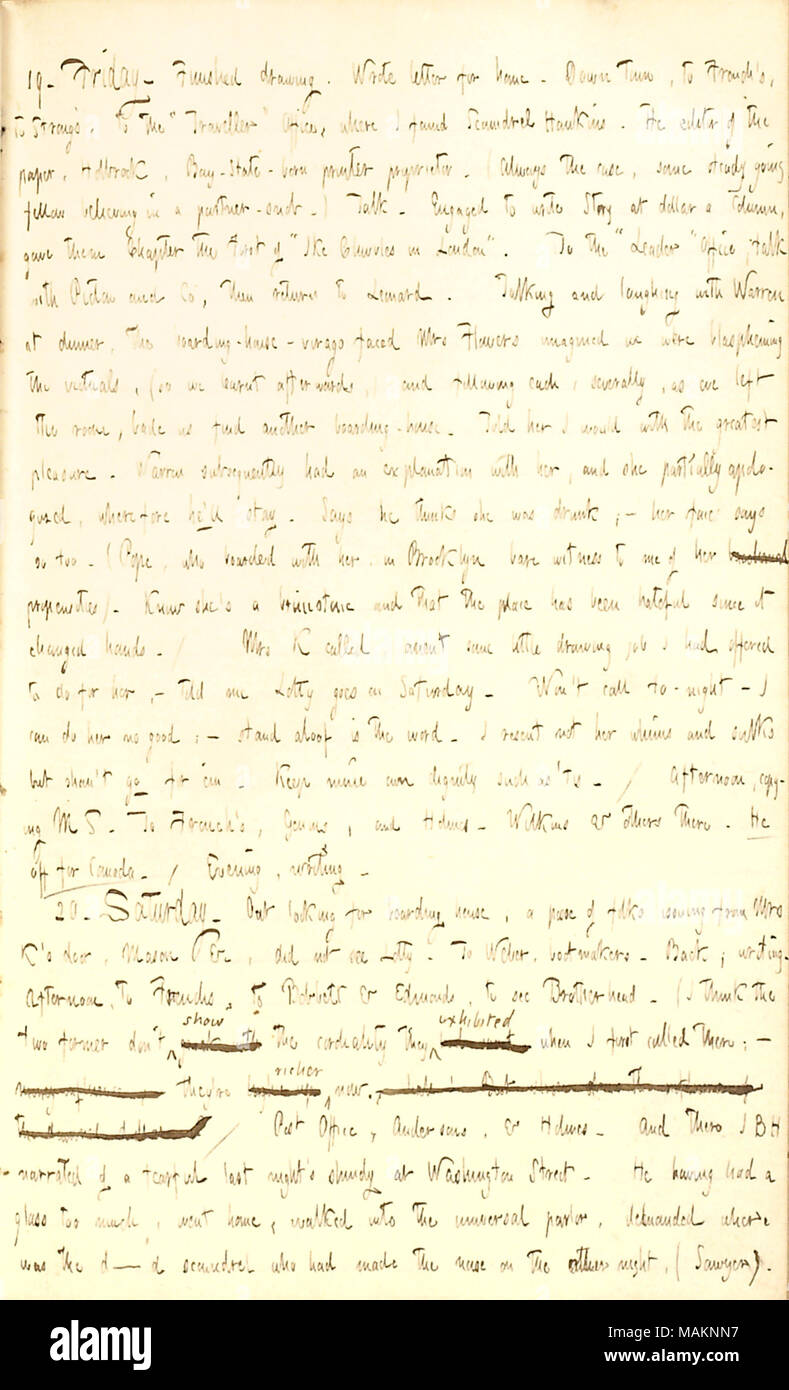 19. Friday. Finished drawing. Wrote letter for home. Down town, to French's,
to Strong's. To the "Traveller" Office, where I found Scoundrel Hankins. He editor of the
paper, Holbrook, Bay-State-born printer proprietor. (Always the case, some steady going
fellow believing in a partner-snob.) Talk. Engaged to write Story at dollar a Column,
gave them Chapter the first of "Ike Chivvles in London". To the "Leader" Office, talk
with Picton and Co, then return to Leonard. Talking and laughing with Warren
at dinner, the boarding-house-virago faced Mrs Flowers imagined we were blaspheming
the victuals, (so we learnt afterwards,) and following each, severally, as we left
the room, bade us find another boarding-house. Told her I would with the greatest
pleasure. Warren subsequently had an explanation with her, and she partially apolo-
gized, wherefore he'll stay. Says he thinks she was drunk; - her face says
so too. (Pope, who boarded with her in Brooklyn bare witness to me of her
propensities). Know she's a brimstone and that the place has been hateful since it
changed hands. / Mrs K called anent some little drawing job I had offered
to do for her, - told me Lotty goes on Saturday. Won't call to-night - I
can do her no good; - stand aloof is the word. I resent not her whims and sulks
but shan't go for 'em. Keep mine own dignity such as 'tis. / Afternoon, copy-
ing M S. To French's, Genins, and Holmes. Wilkins & others there. He
off for Canada. / Evening, writing.
20. Saturday. Out looking for boarding house, a posse of folks issuing from Mrs
K's door, Mason &c, did not see Lotty. To Weber, bootmakers. Back; writing.
Afternoon, to Frenchs, to Bobbett & Edmonds, to see Brotherhead. (I think the
two former don't show the cordiality they exhibited when I first called there; -
they're richer now.
/ Post Office, Andersons, & Holmes. And there J B H
narrated of a fearful last night's shindy at Washington Street. He having had a
glass too much, went home, walked into the universal parlor, demanded where
was the d—d scoundrel who had made the noise on the other night, (Sawyer).
alamy
Image ID: MAKNN7
www.alamy.com